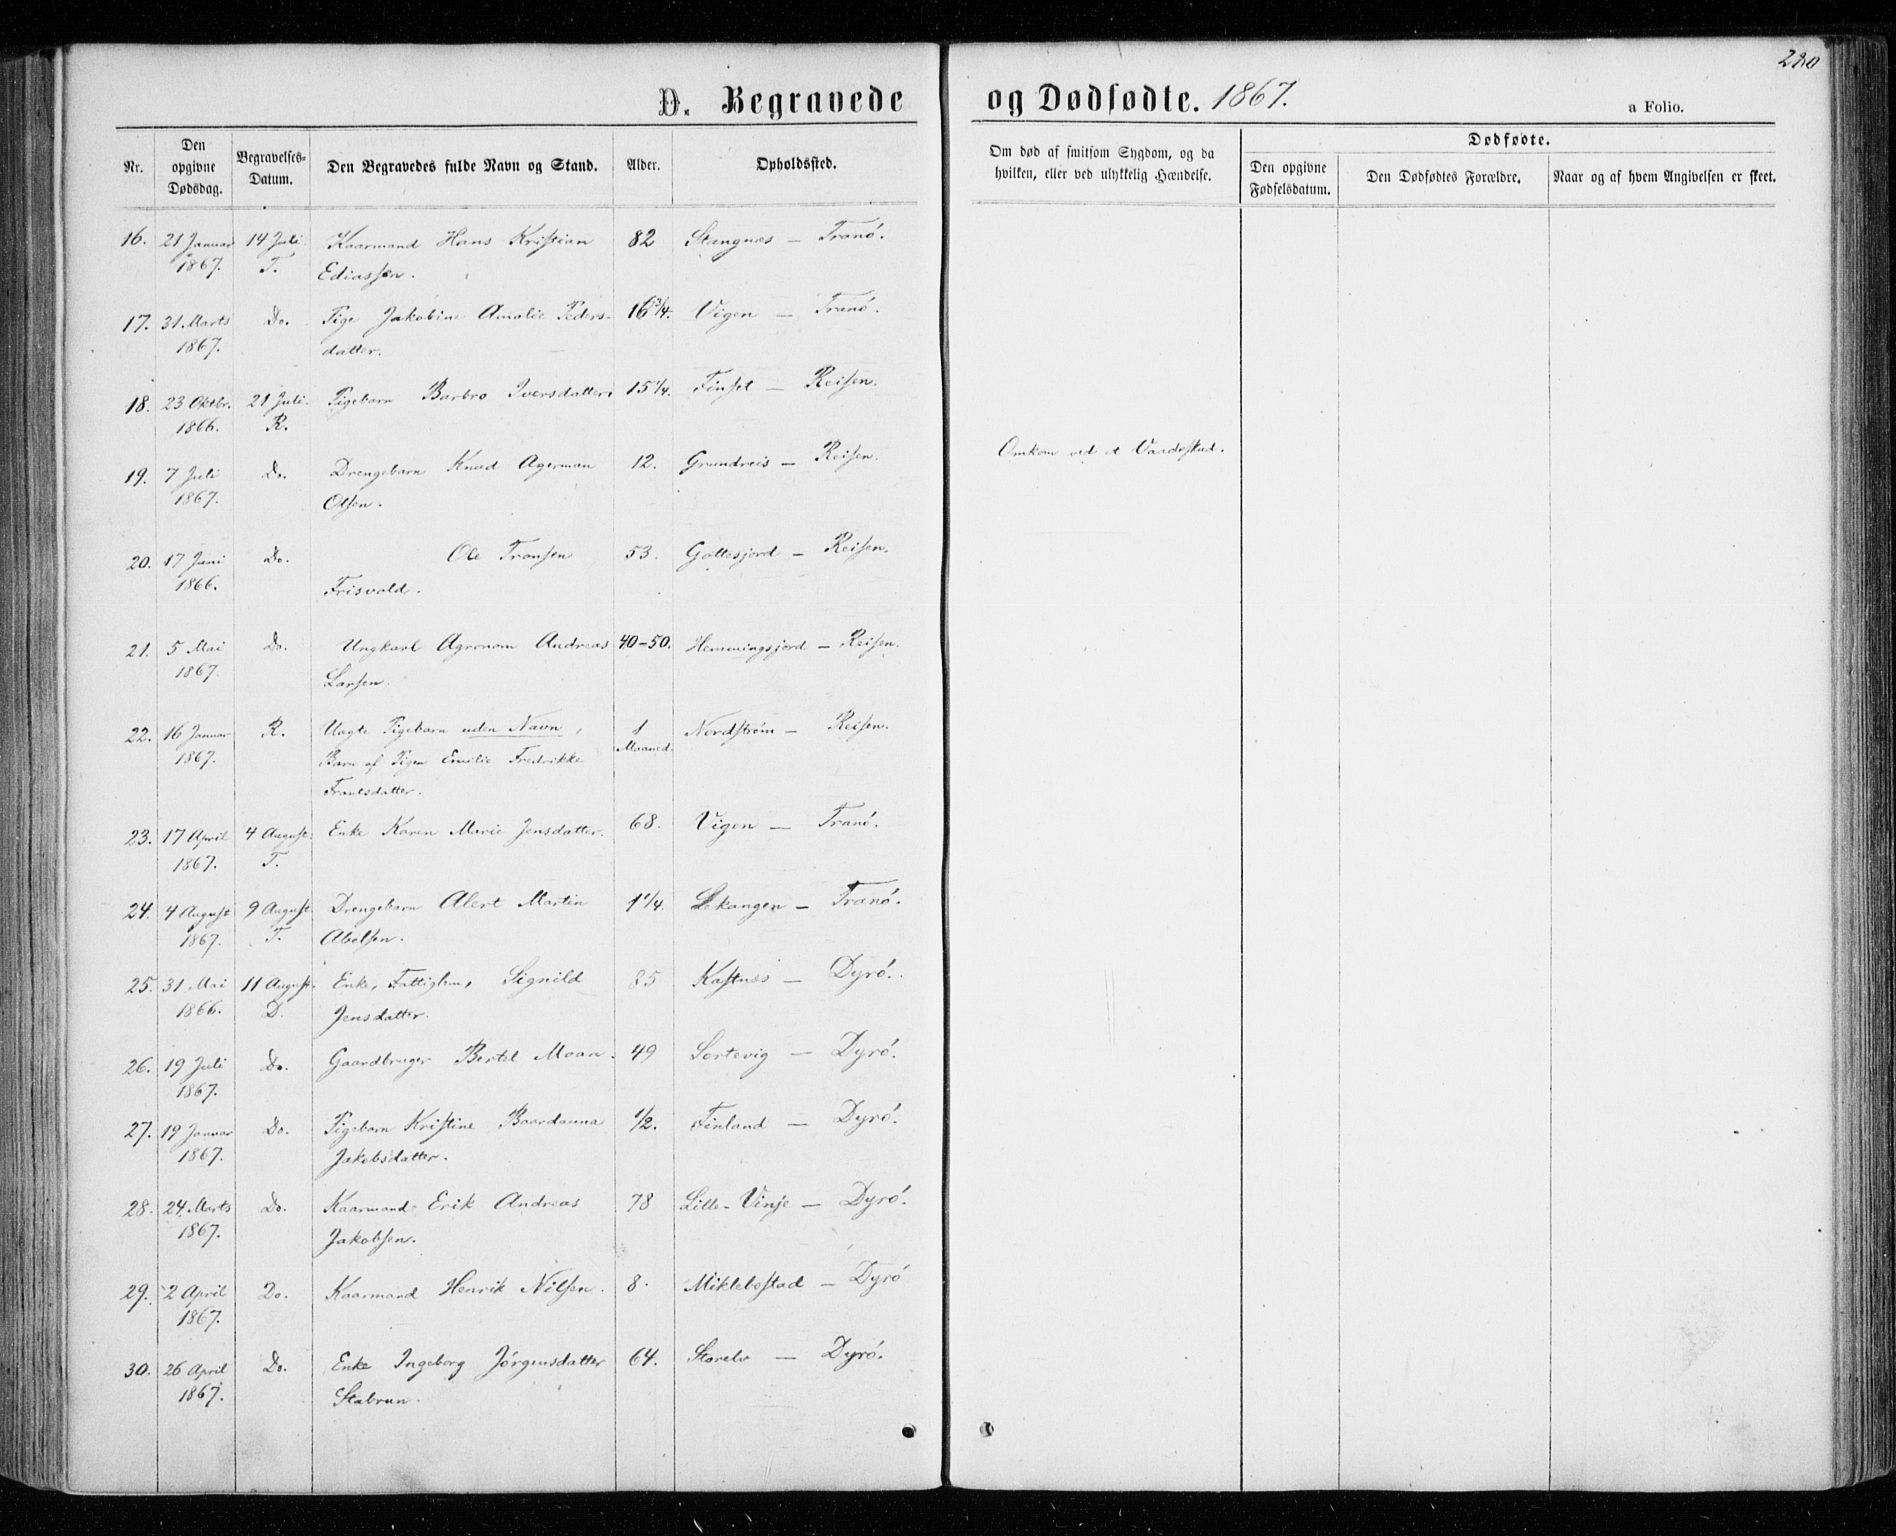 280
D. Begravede og Dødfødte. 1867.
a Folio.
Nr.
Den opgivne Dødsdag.
Begravelses-Datum.
Den Begravedes fulde Navn og Stand.
Alder.
Opholdssted.
Om død af smitsom Sygdom, og da hvilken, eller ved ulykkelig Hændelse.
Dødfødte.
Den opgivne Fødselsdatum.
Den Dødfødtes Forældre.
Naar og af hvem Angivelsen er skeet.
16. 21 Januar 14 Juli Kaarmand Hans Kristian 82 Stangnæs — Tranö.
1867. T. Ediassen.
17. 31 Marts Do. Pige Jakobine Amalie Peders- 16 3/4. Vigen — Tranö.
1867. datter.
18. 23 Oktbr. 21 Juli Pigebarn Barbro Iversdatter 15 1/4. Finset — Reisen.
1866. R.
19. 7 Juli Do. Drengebarn Knud Agerman 12. Grundreis — Reisen. Omkom ved et Vaadeskud.
1867. Olsen.
20. 17 Juni Do. Ole Tronsen 53. Gottesjord — Reisen.
1866. Frisvold.
21. 5 Mai Do. Ungkarl Agronom Andreas 40-50. Hemmingsjord — Reisen.
1867. Larsen.
22. 16 Januar R. Uægte Pigebarn uden Navn, 1 Nordstrøm — Reisen.
1867. Barn af Pigen Emilie Fredrikke Maaned.
Frantsdatter.
23. 17 April 4 August Enke Karen Marie Jensdatter. 68. Vigen — Tranö.
1867. T.
24. 4 August 9 August Drengebarn Alert Martin 1 1/4. Lekangen — Tranö.
1867. T. Abelsen.
25. 31 Mai 11 August. Enke, Fattiglem, Signild 85 Kastnæs — Dyrö.
1866. D. Jensdatter.
26. 19 Juli Do. Gaardbruger Bertel Moan. 49 Sortevig — Dyrö.
1867.
27. 19 Januar Do. Pigebarn Kristine Baardauna 1/2. Finland — Dyrö.
1867. Jakobsdatter.
28. 24 Marts Do. Kaarmand Erik Andreas 78 Lille-Vinje — Dyrö.
1867. Jakobsen.
29. 2 April Do. Kaarmand Henrik Nilsen. 8. Miklebostad — Dyrö
1867.
30. 26 April Do. Enke Ingeborg Jörgensdatter 64. Storelv — Dyrö.
1867. Stabrun.